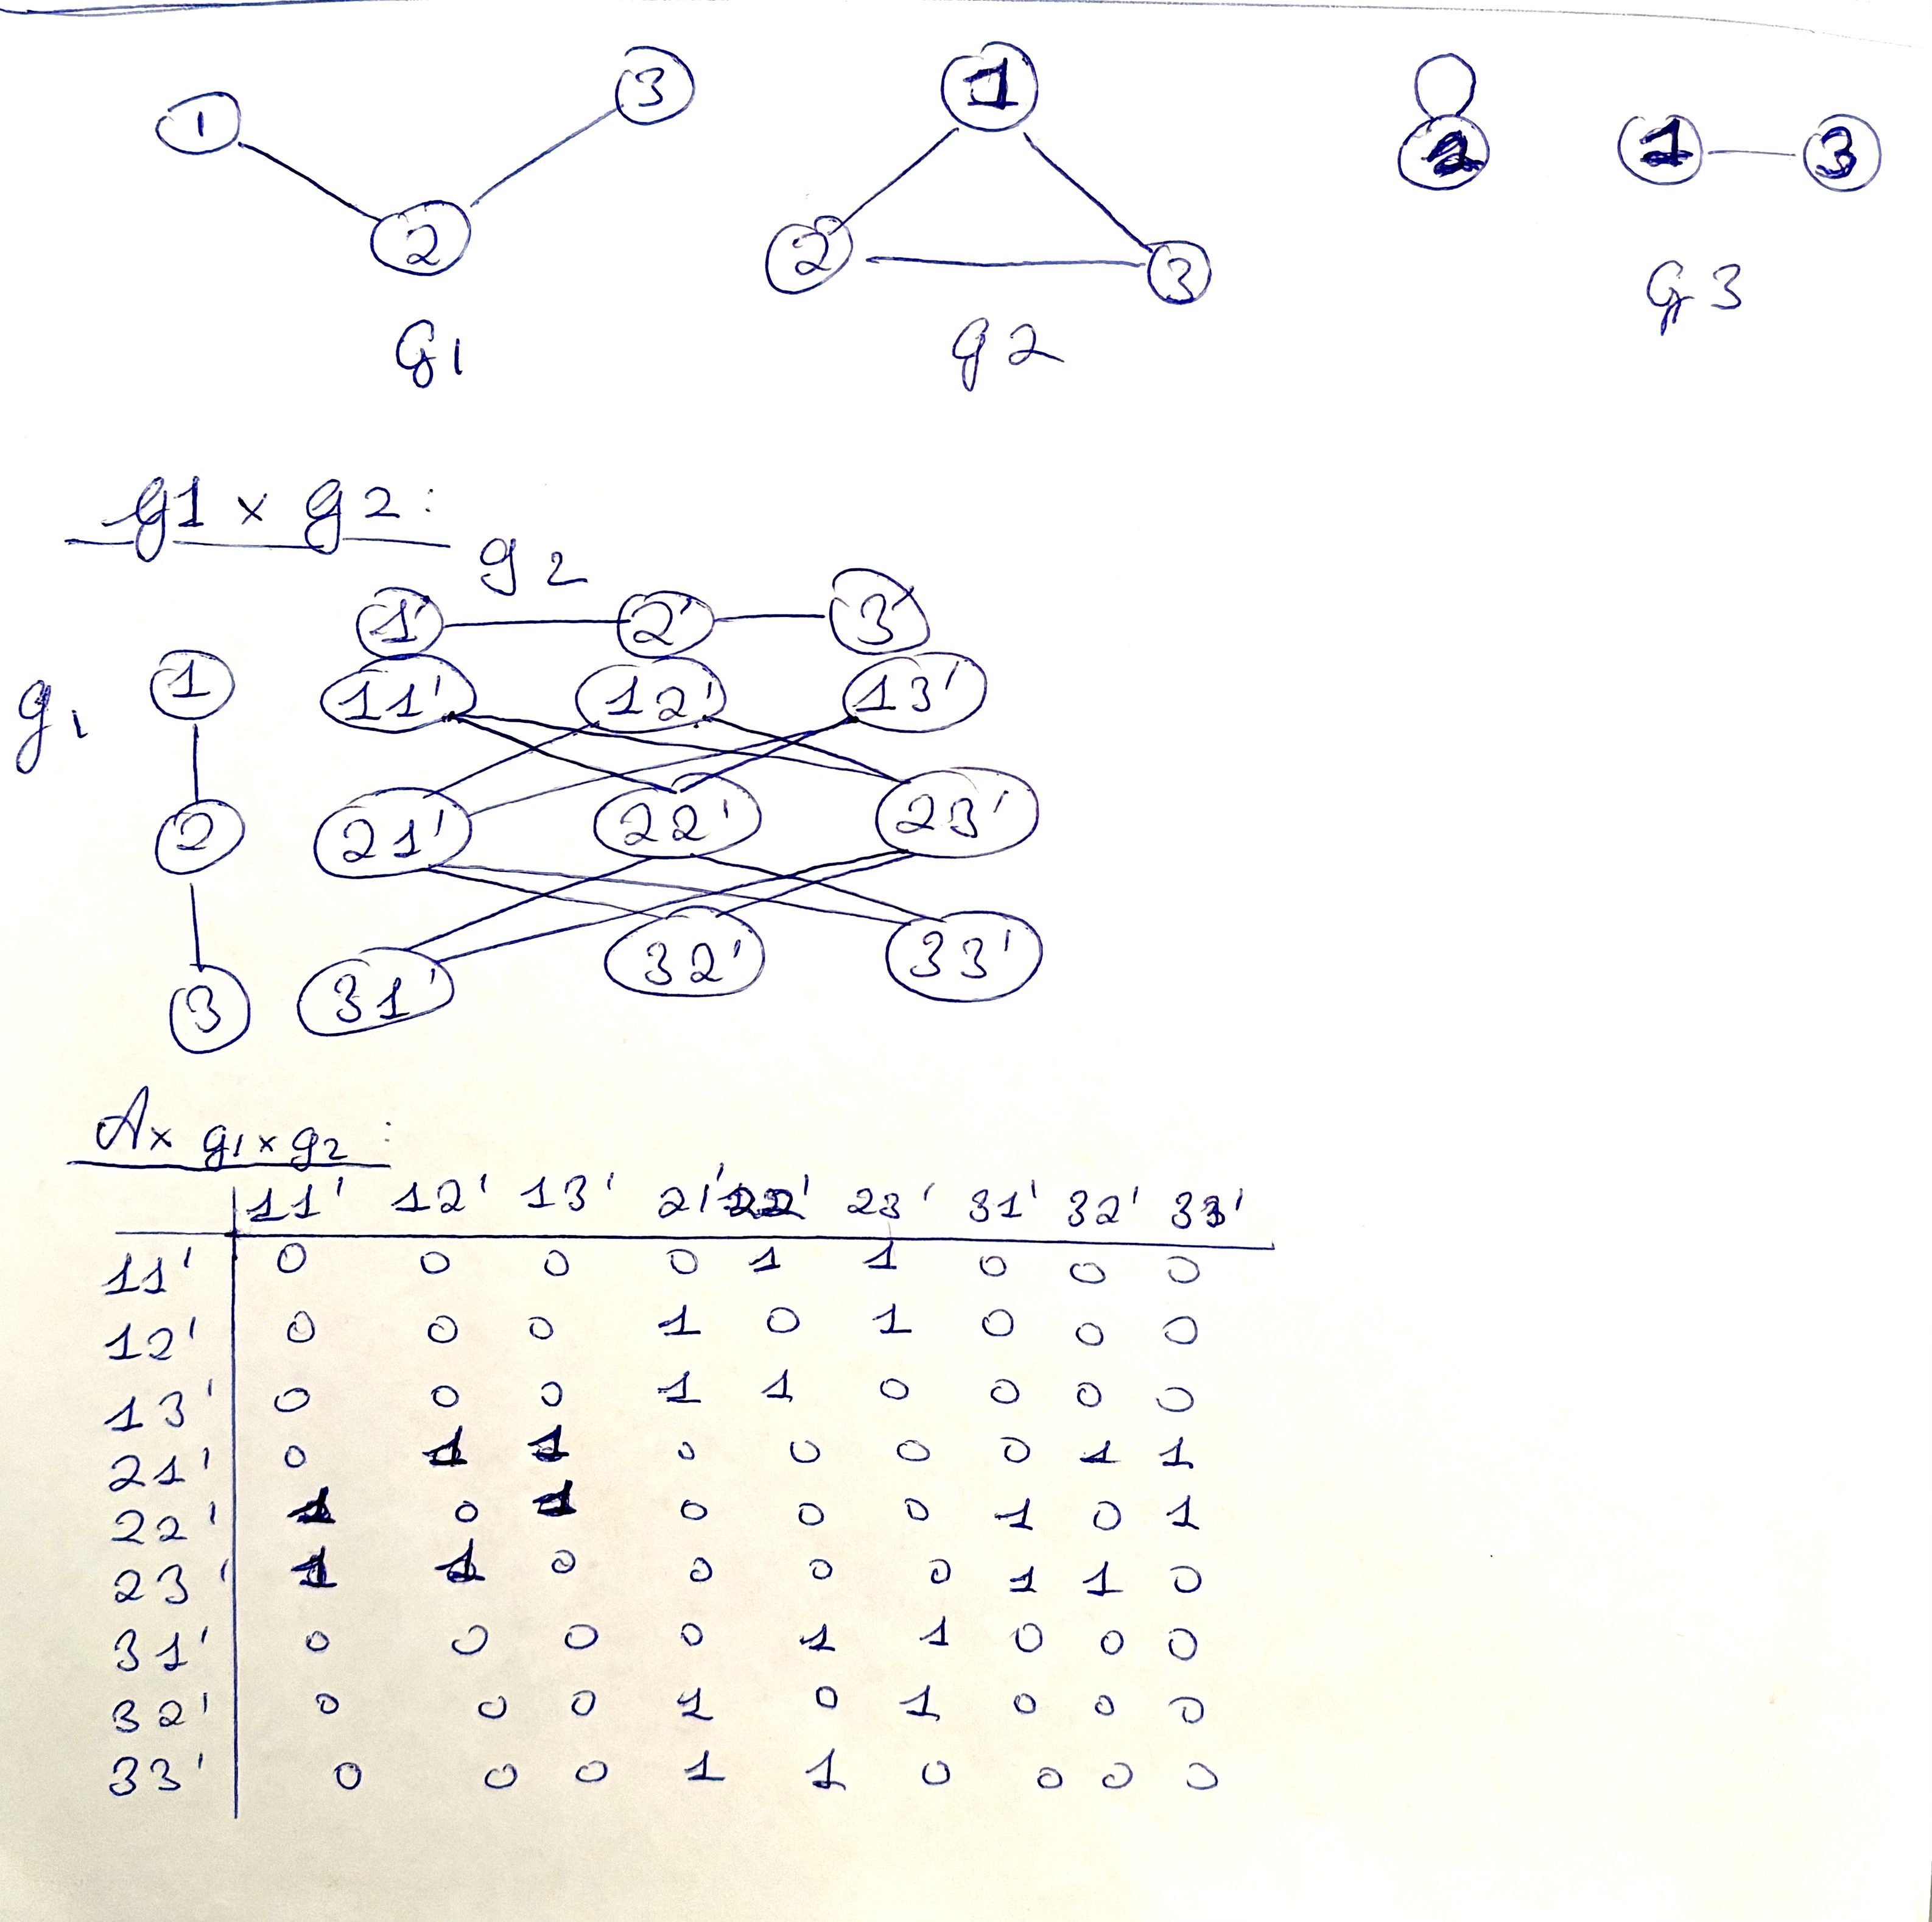 1 3 1 2 1 3
2 2 3
G1 G2 G3
G1 x G2 :
g2
1' 2' 3'
g1 1 11' 12' 13'
2 21' 22' 23'
3 31' 32' 33'
Ax g1 x g2 :
11' 12' 13' 21' 22' 23' 31' 32' 33'
11' 0 0 0 0 1 1 0 0 0
12' 0 0 0 1 0 1 0 0 0
13' 0 0 0 1 1 0 0 0 0
21' 0 1 1 0 0 0 0 1 1
22' 1 0 1 0 0 0 1 0 1
23' 1 1 0 0 0 0 1 1 0
31' 0 0 0 0 1 1 0 0 0
32' 0 0 0 1 0 1 0 0 0
33' 0 0 0 1 1 0 0 0 0